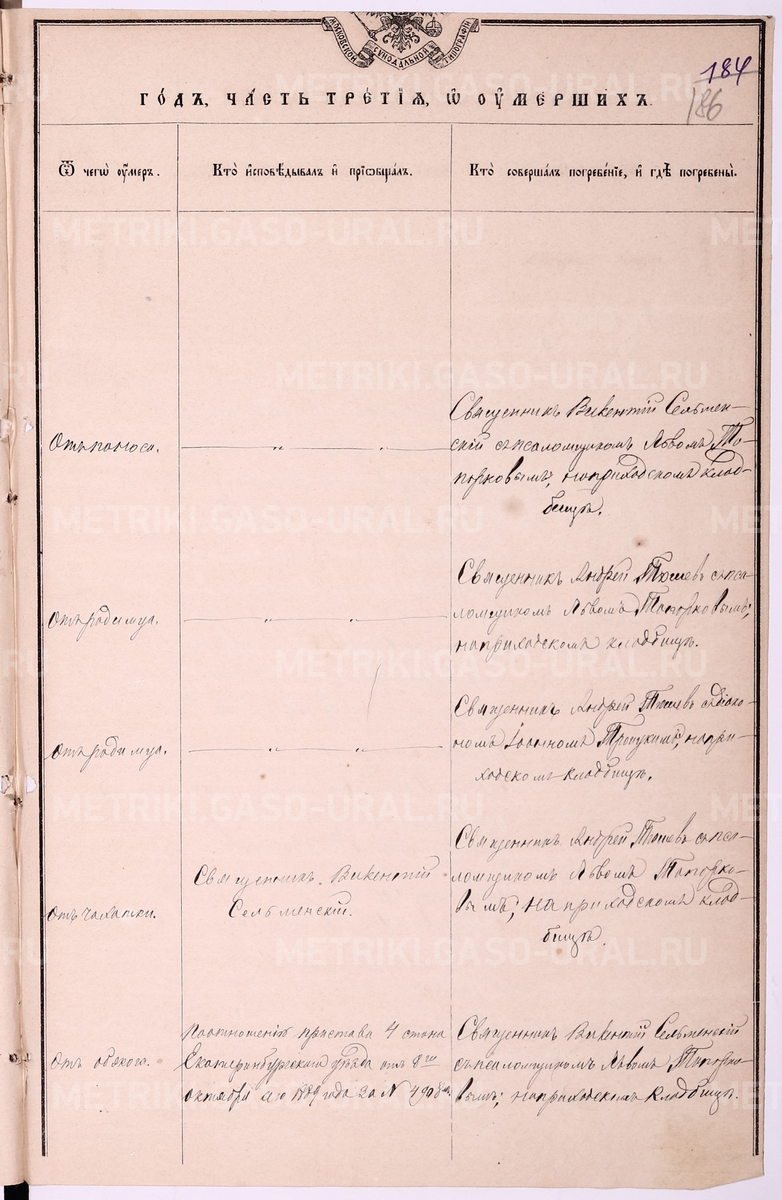 МОСКОВСКОЙ СѴНОДАЛЬНОЙ ТИПОГРАФІИ
184
186
ГОДЪ, ЧАСТЬ ТРЕТІЯ, Ѿ ОУМЕРШИХЪ.
Ѿ чегѡ оумеръ.
Кто исповѣдывалъ и пріобщалъ.
Кто совершалъ погребеніе, и гдѣ погребены.
Отъ поноса.
— „ — „ —
Священникъ Викентій Сельмен-
скій съ псаломщикомъ Львомъ То-
порковымъ, на приходскомъ клад-
бищѣ.
Отъ родимца.
— „ — „ —
Священникъ Андрей Тюшевъ съ пса-
ломщикомъ Львомъ Топорковымъ,
на приходскомъ кладбищѣ.
Отъ родимца.
— „ — „ —
Священникъ Андрей Тюшевъ съ діако-
номъ Іоанномъ Троицкимъ, на при-
ходскомъ кладбищѣ.
Отъ чахотки.
Священникъ Викентій
Сельменскій.
Священникъ Андрей Тюшевъ съ пса-
ломщикомъ Львомъ Топорко-
вымъ, на приходскомъ клад-
бищѣ.
Отъ
По отношенію пристава 4 стана
Екатеринбургскаго уѣзда отъ 8го
октября 1889 года за N 4908
Священникъ Викентій Сельменскій
съ псаломщикомъ Львомъ Топорко-
вымъ, на приходскомъ кладбищѣ.
METRIKI.GASO-URAL.RU